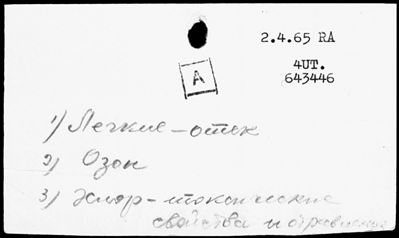 2.4.65 RA
4UT.
643446
A
1) Легкие – отек
2) Озон
3) Хлор – токсические
свойства и отравление